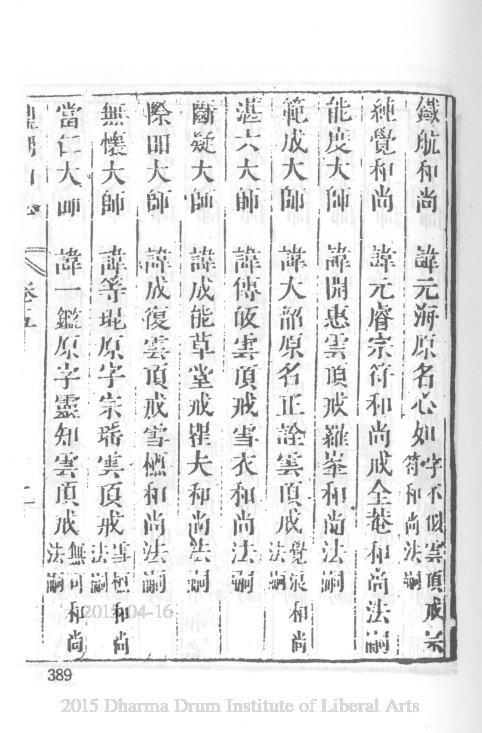 鐵航和尚 諱元海原名心如字不似雲頂戒宗符和尚法嗣
純覺和尚 諱元睿宗符和尚戒全菴和尚法嗣
能度大師 諱開惠雲頂戒羅峯和尚法嗣
範成大師 諱大韶原名正詮雲頂戒覺浪和尚法嗣
湛六大師 諱傳皈雲頂戒雪衣和尚法嗣
斷疑大師 諱成能草堂戒瞿夫和尚法嗣
際皿大師 諱成復雲頂戒雪樵和尚法嗣
無懷大師 諱等琨原字宗璠雲頂戒雪樵和尚法嗣
當仁大師 諱一鑑原字靈知雲頂戒無可和尚法嗣
卷十五
389
2015-04-16
2015 Dharma Drum Institute of Liberal Arts